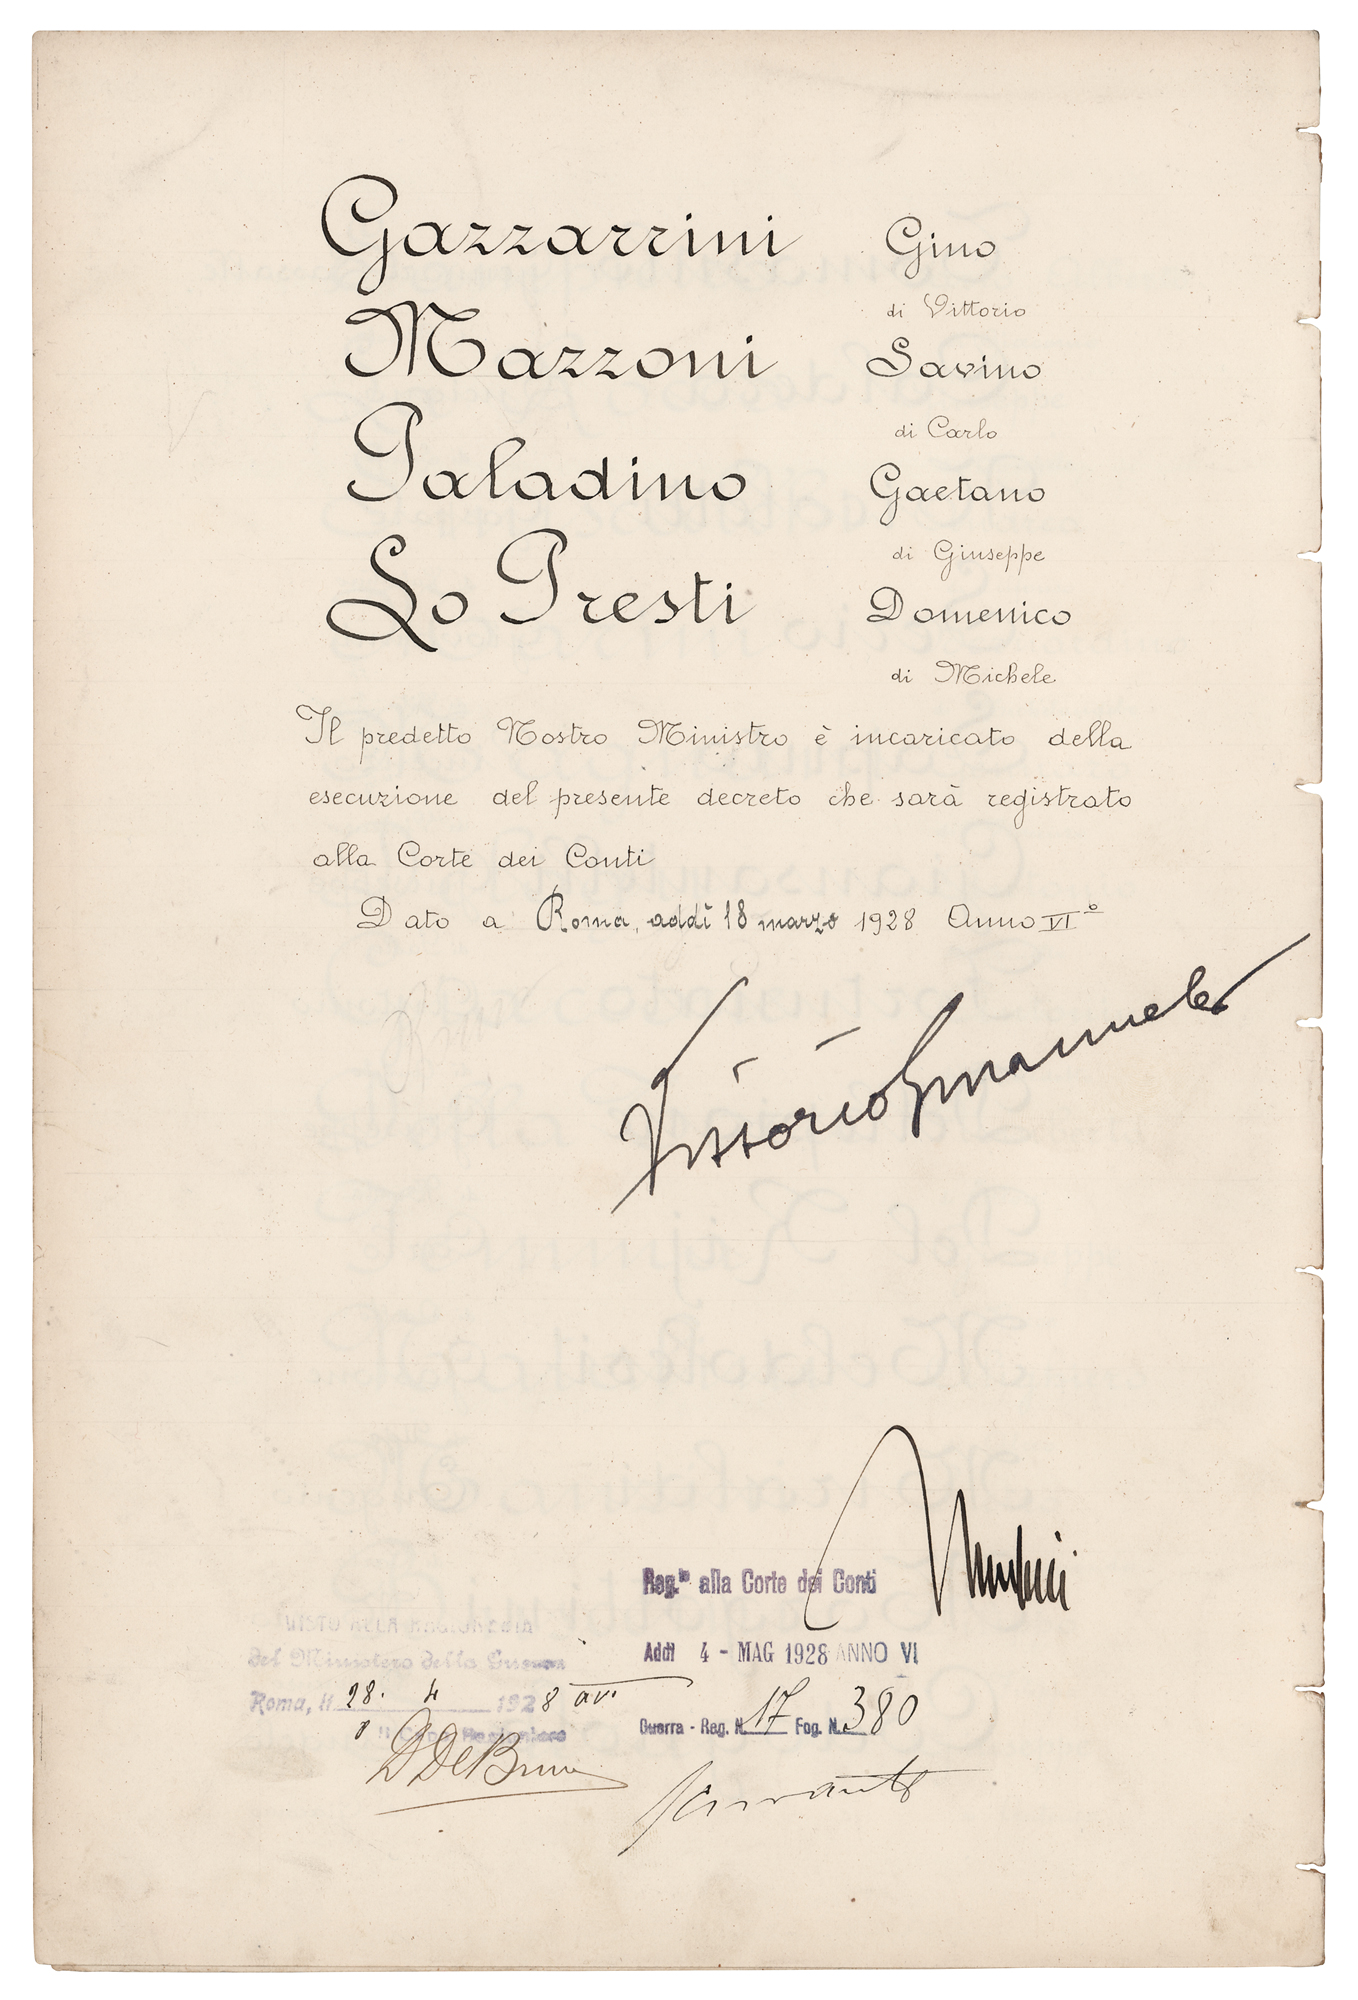 Gazzarrini Gino
di Vittorio
Mazzoni Savino
di Carlo
Paladino Gaetano
di Giuseppe
Lo Presti Domenico
di Michele
Il predetto Nostro Ministro è incaricato della
esecuzione del presente decreto che sarà registrato
alla Corte dei Conti
Dato a Roma, addì 18 marzo 1928 Anno VI°
Vittorio Emanuele
Reg.to alla Corte dei Conti
Addì 4 - MAG 1928 ANNO VI
Guerra - Reg. N. 17 Fog. N. 380
VISTO ALLA RAGIONERIA
del Ministero della Guerra
Roma, li 28. 4 1928
Il Capo Ragioniere